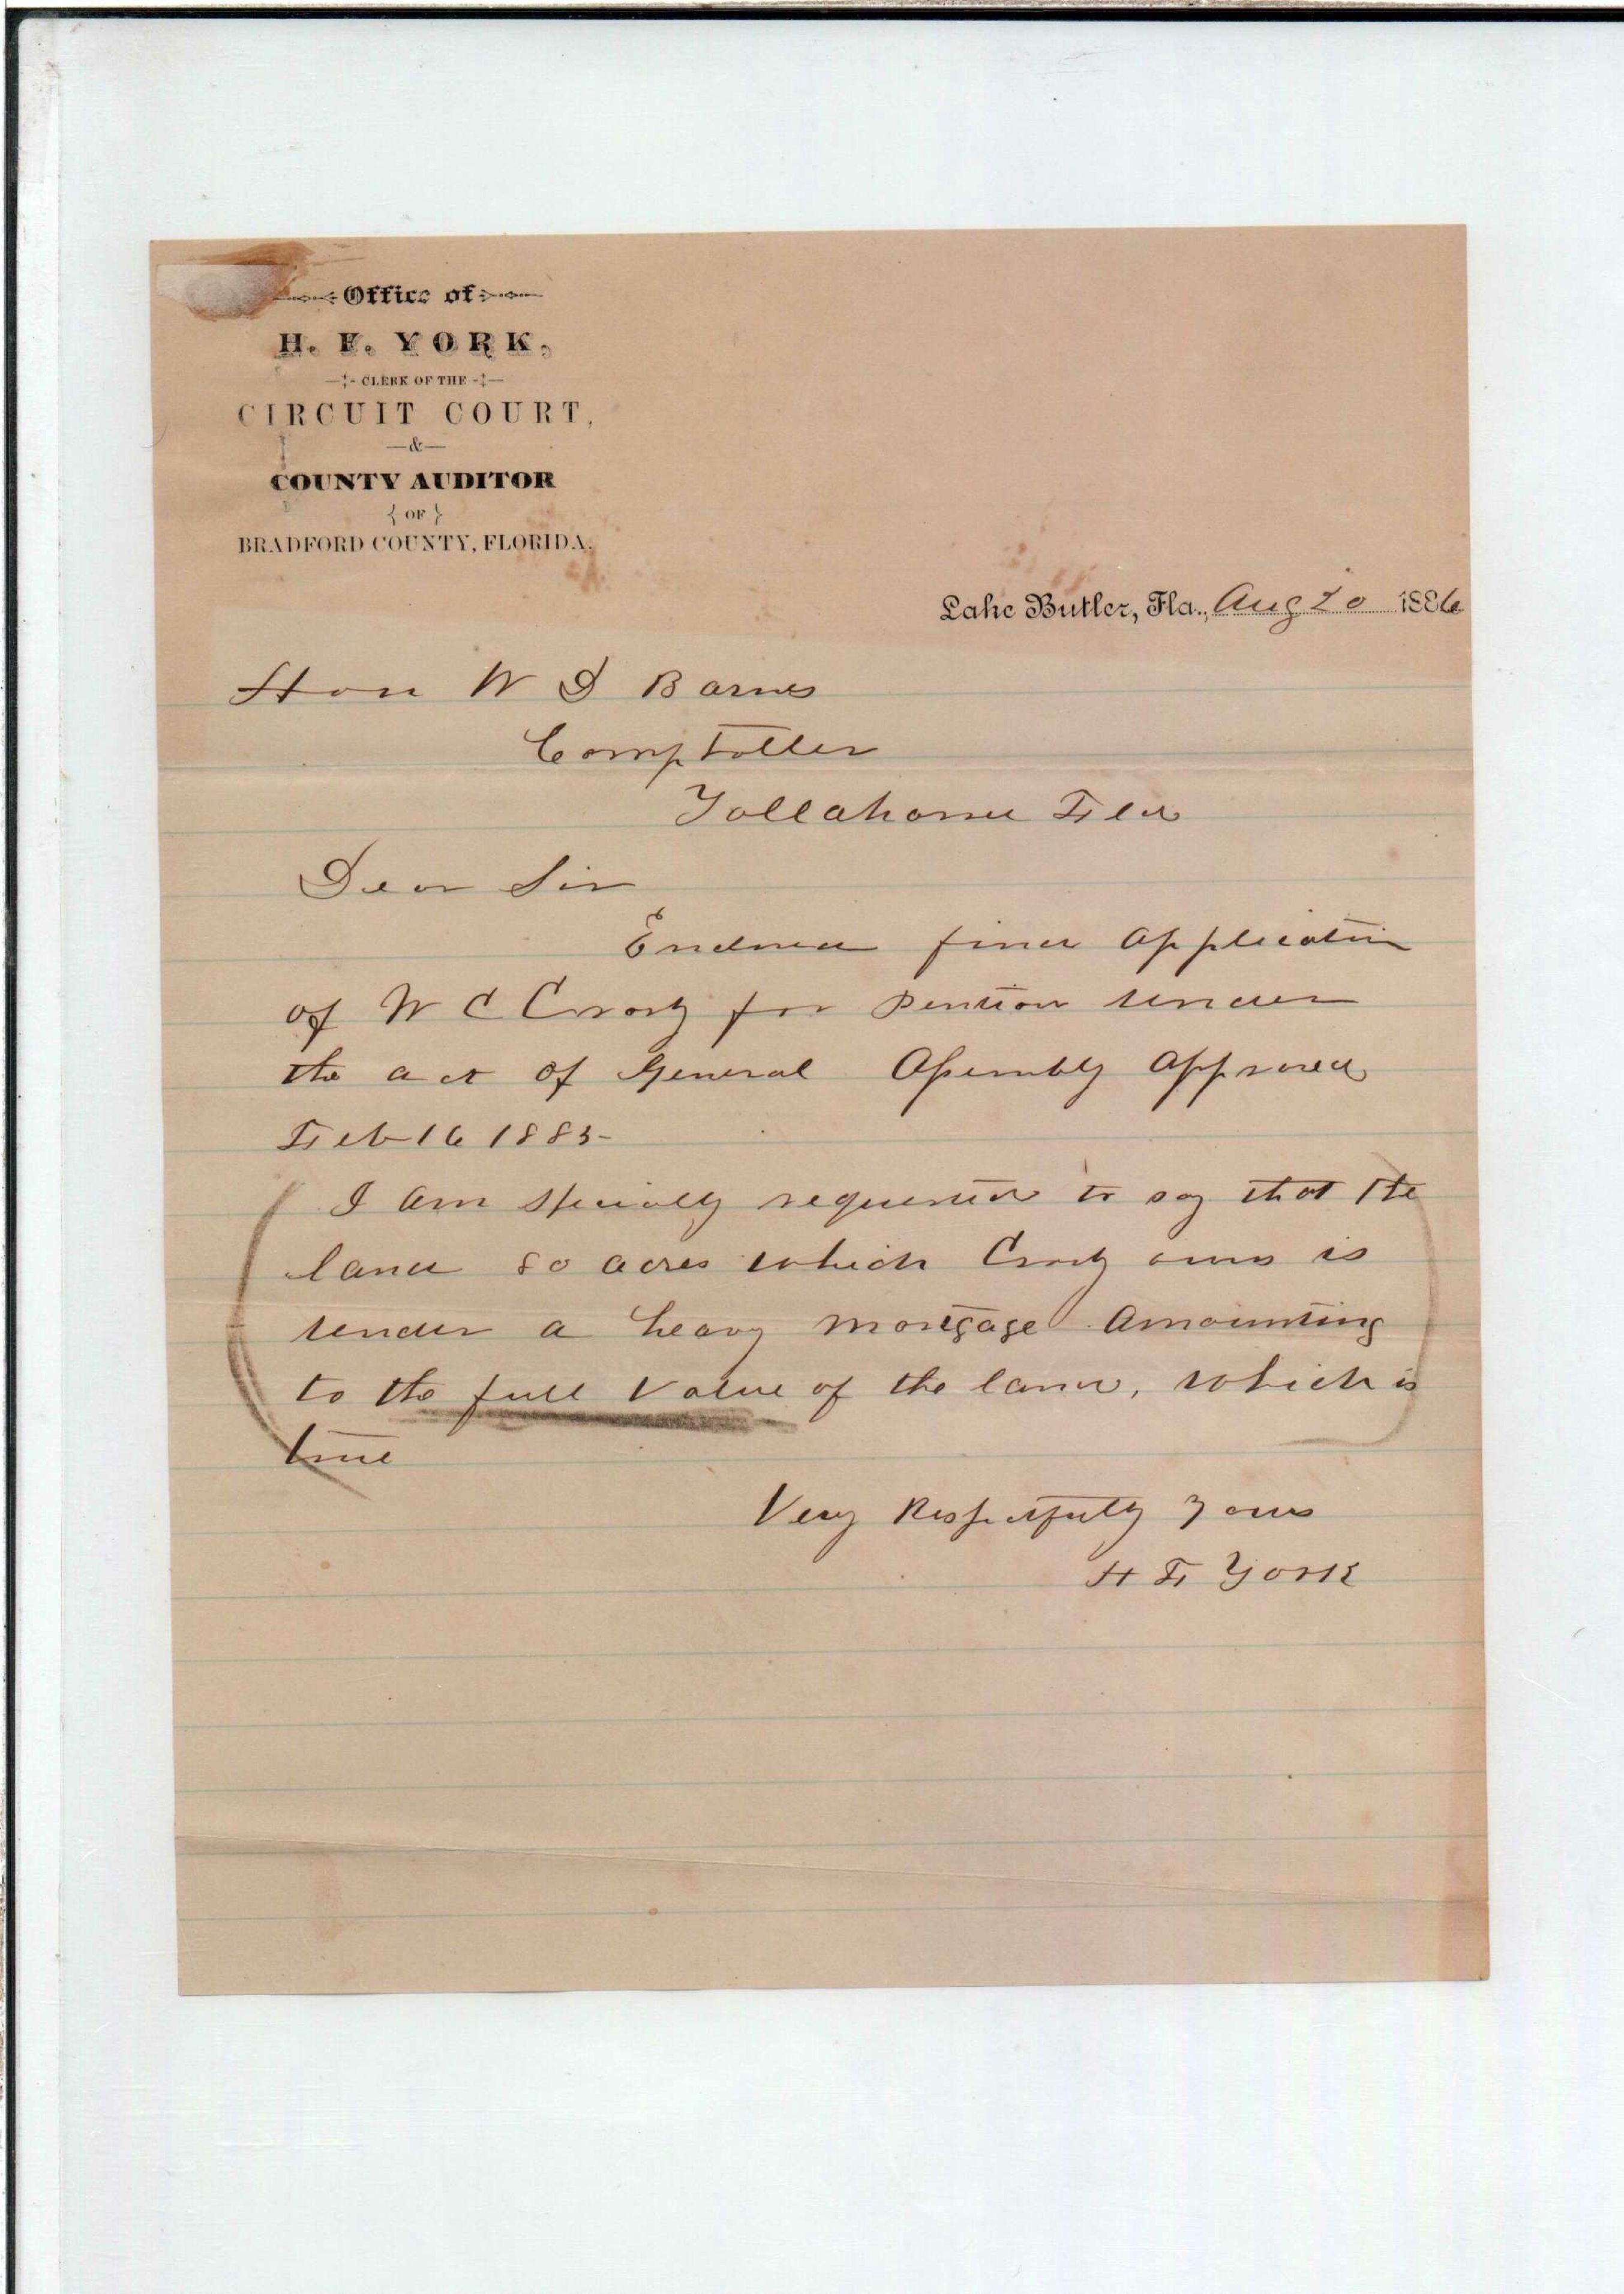 Office of
H. F. YORK,
CLERK OF THE
CIRCUIT COURT,
&
COUNTY AUDITOR
{ OF }
BRADFORD COUNTY, FLORIDA.
Lake Butler, Fla., Aug 20 1886
Hon W D Barnes
Comptoller
Tallahassee Fla
Dear Sir
Enclosed find application
of W C for Pention under
the act of General Assembly approved
Feb 16 1885
I am specially requested to say that the
land 80 acres which owns is
under a heavy mortgage amounting
to the full value of the land, which is
true
Very Respectfully Yours
H F York